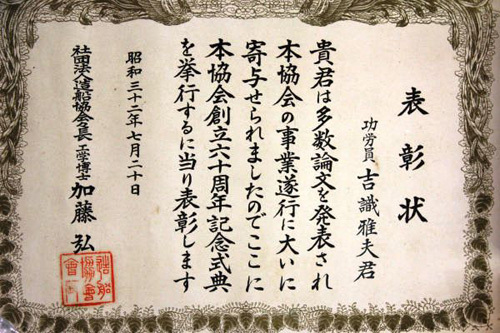 表彰状
功労員 吉識雅夫君
貴君は多数論文を発表され
本協会の事業遂行に大いに
寄与せられましたのでここに
本協会創立六十周年記念式典
を挙行するに当り表彰します
昭和三十二年七月二十日
社団法人造船協会会長 工学博士 加藤弘
造船協会会